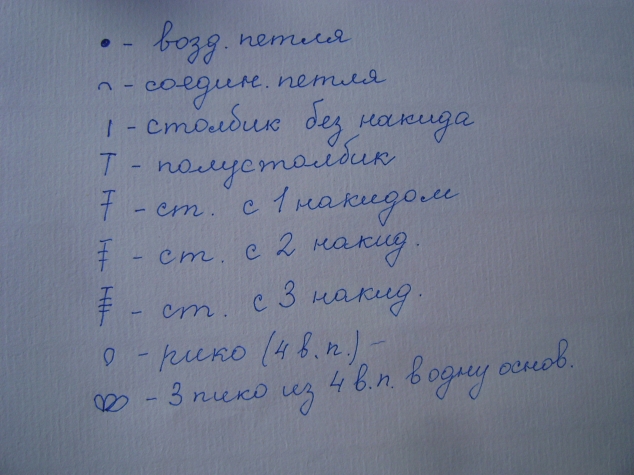 • - возд. петля
⌒ - соедин. петля
ı - столбик без накида
T - полустолбик
Ŧ - ст. с 1 накидом
ŧ - ст. с 2 накид.
ŧ - ст. с 3 накид.
о - пико (4 в.п.) -
- 3 пико из 4 в.п. в одну основ.